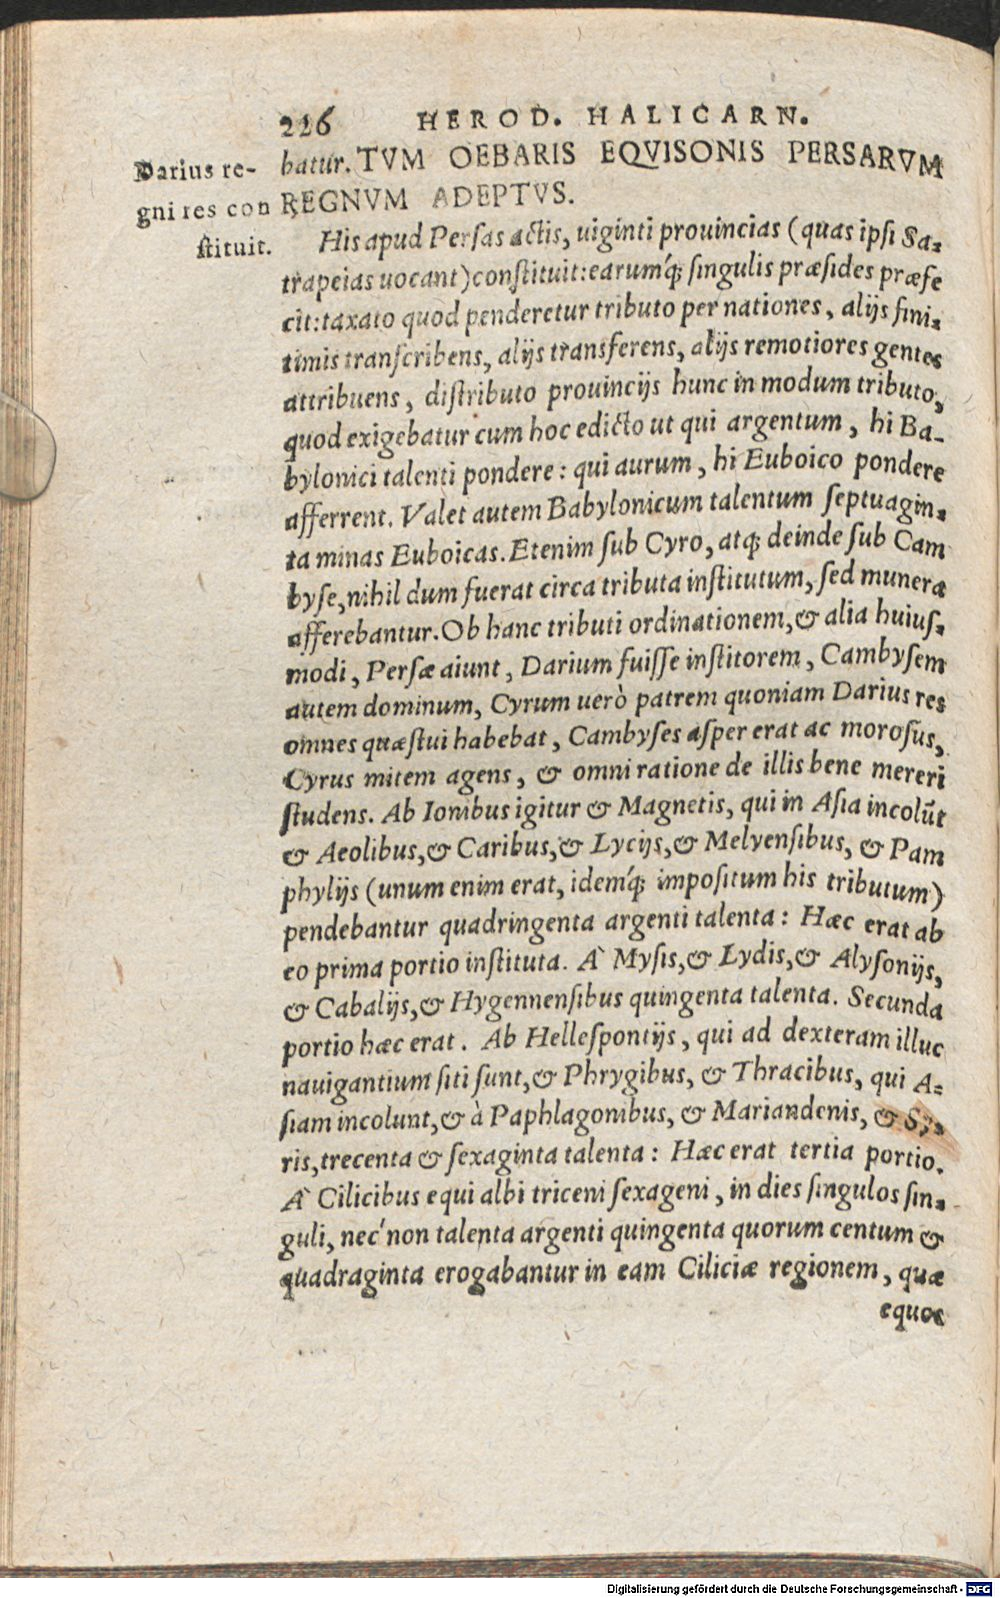 226 HEROD. HALICARN.
Darius re-
gni res con
ſtituit.
batur. TVM OEBARIS EQVISONIS PERSARVM
REGNVM ADEPTVS.
His apud Perſas actis, uiginti prouincias (quas ipſi Sa-
trapeias uocant) conſtituit: earumq́; ſingulis præſides præfe
cit: taxato quod penderetur tributo per nationes, alijs fini-
timis tranſcribens, alijs transferens, alijs remotiores gentes
attribuens, diſtributo prouincijs hunc in modum tributo,
quod exigebatur cum hoc edicto ut qui argentum, hi Ba-
bylonici talenti pondere: qui aurum, hi Euboico pondere
afferrent. Valet autem Babylonicum talentum ſeptuagin-
ta minas Euboicas. Etenim ſub Cyro, atq; deinde ſub Cam
byſe, nihil dum fuerat circa tributa inſtitutum, ſed munera
afferebantur. Ob hanc tributi ordinationem, & alia huiuſ-
modi, Perſæ aiunt, Darium fuiſſe inſtitorem, Cambyſem
autem dominum, Cyrum uerò patrem quoniam Darius res
omnes quæſtui habebat, Cambyſes aſper erat ac moroſus,
Cyrus mitem agens, & omni ratione de illis bene mereri
ſtudens. Ab Ionibus igitur & Magnetis, qui in Aſia incolũt
& Aeolibus, & Caribus, & Lycijs, & Melyenſibus, & Pam
phylijs (unum enim erat, idemq́; impoſitum his tributum)
pendebantur quadringenta argenti talenta: Hæc erat ab
eo prima portio inſtituta. A` Myſis, & Lydis, & Alyſonijs,
& Cabalijs, & Hygennenſibus quingenta talenta. Secunda
portio hæc erat. Ab Helleſpontijs, qui ad dexteram illuc
nauigantium ſiti ſunt, & Phrygibus, & Thracibus, qui A-
ſiam incolunt, & à Paphlagonibus, & Mariandenis, & Sy-
ris, trecenta & ſexaginta talenta: Hæc erat tertia portio.
A` Cilicibus equi albi triceni ſexageni, in dies ſingulos ſin-
guli, nec non talenta argenti quingenta quorum centum &
quadraginta erogabantur in eam Ciliciæ regionem, quæ
equos
Digitalisierung gefördert durch die Deutsche Forschungsgemeinschaft - DFG